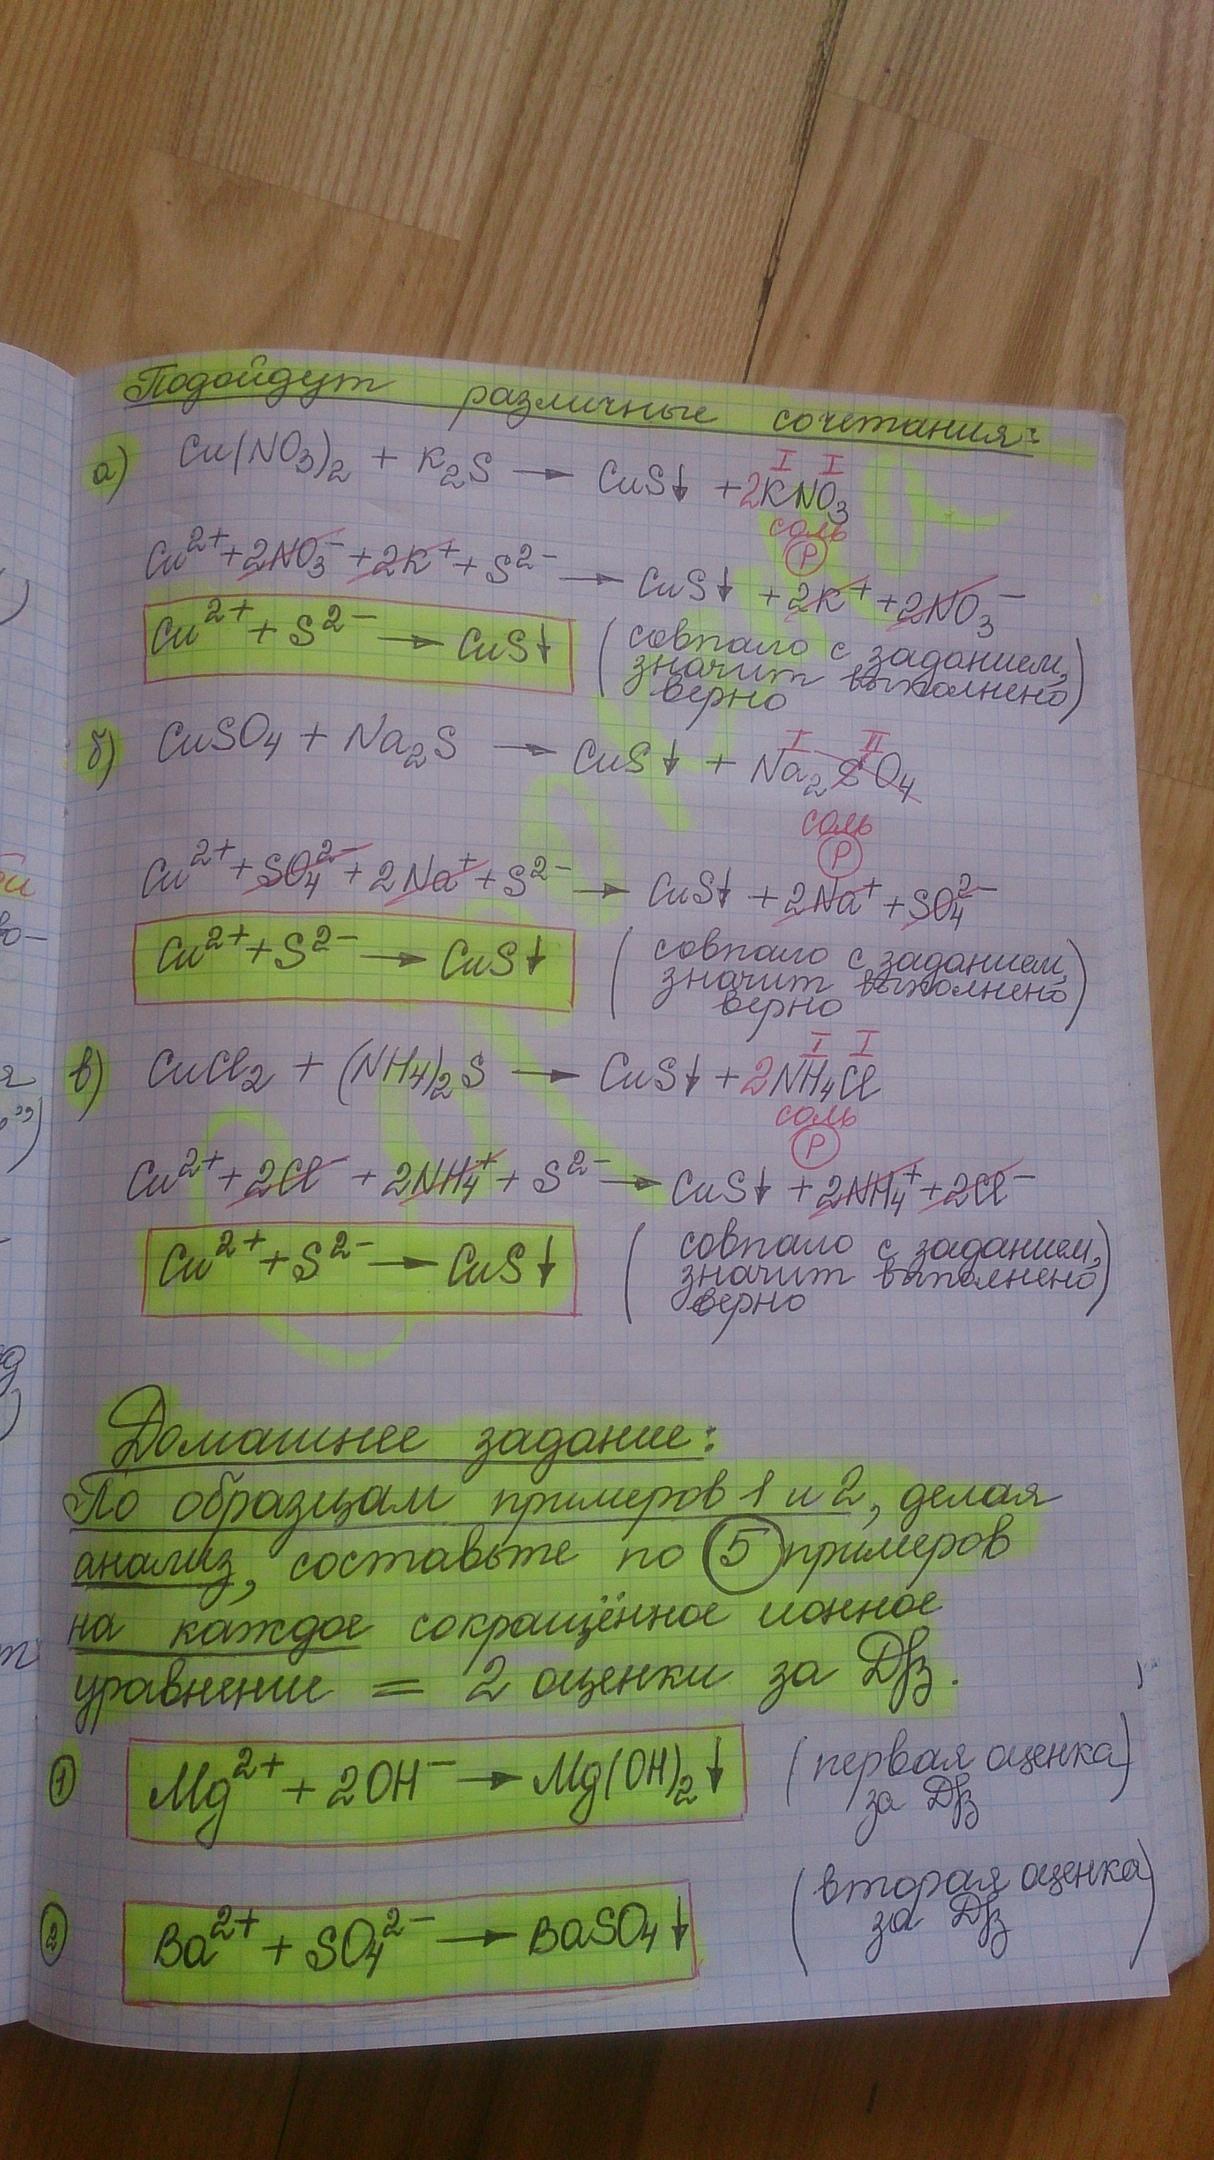 Подойдут различные сочетания:
а) Cu(NO₃)₂ + K₂S → CuS↓ + 2KNO₃
I I
соль
Р
Cu²⁺ + 2NO₃⁻ + 2K⁺ + S²⁻ → CuS↓ + 2K⁺ + 2NO₃⁻
Cu²⁺ + S²⁻ → CuS↓ (совпало с заданием,
значит выполнено
верно)
б) CuSO₄ + Na₂S → CuS↓ + Na₂SO₄
I II
соль
Р
Cu²⁺ + SO₄²⁻ + 2Na⁺ + S²⁻ → CuS↓ + 2Na⁺ + SO₄²⁻
Cu²⁺ + S²⁻ → CuS↓ (совпало с заданием,
значит выполнено
верно)
в) CuCl₂ + (NH₄)₂S → CuS↓ + 2NH₄Cl
I I
соль
Р
Cu²⁺ + 2Cl⁻ + 2NH₄⁺ + S²⁻ → CuS↓ + 2NH₄⁺ + 2Cl⁻
Cu²⁺ + S²⁻ → CuS↓ (совпало с заданием,
значит выполнено
верно)
Домашнее задание:
По образцам примеров 1 и 2, делая
анализ, составьте по 5 примеров
на каждое сокращённое ионное
уравнение = 2 оценки за Д/з.
1 Mg²⁺ + 2OH⁻ → Mg(OH)₂↓ (первая оценка
за Д/з)
2 Ba²⁺ + SO₄²⁻ → BaSO₄↓ (вторая оценка
за Д/з)